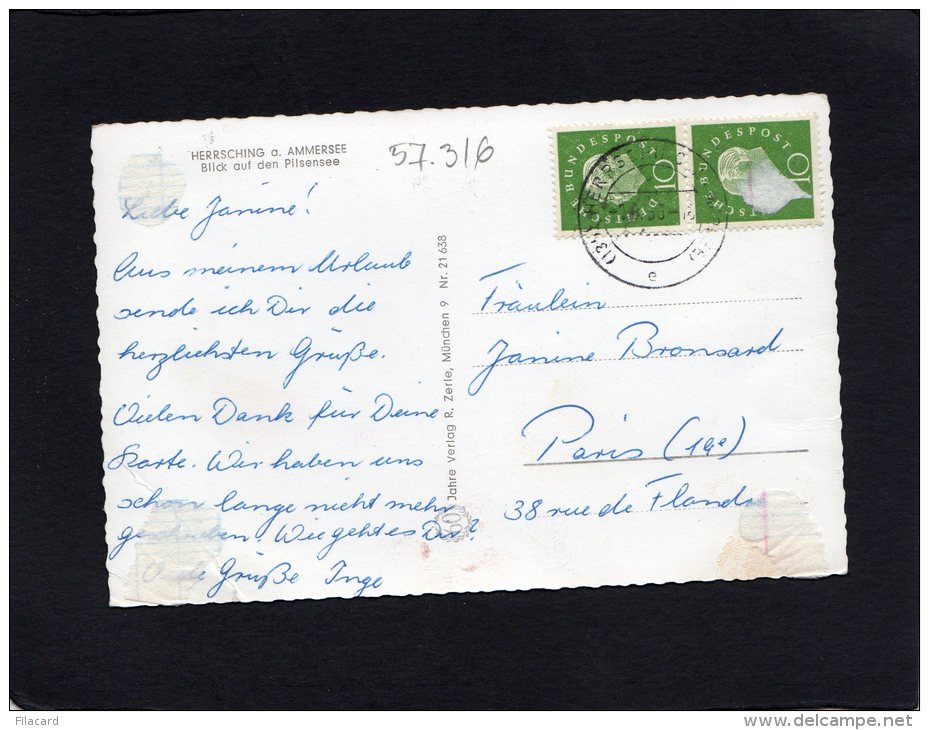 HERRSCHING a. AMMERSEE
Blick auf den Pilsensee
57.316
Liebe Janine!
Aus meinem Urlaub
sende ich Dir die
herzlichsten Grüße.
Vielen Dank für Deine
Karte. Wir haben uns
schon lange nicht mehr
geschrieben. Wie geht es Dir?
Viele Grüße Inge
60 Jahre Verlag R. Zerle, München 9 Nr. 21 638
DEUTSCHE BUNDESPOST
10
DEUTSCHE BUNDESPOST
10
(13b) HERRSCHING
e
Fräulein
Janine Bronsard
Paris (19e)
38 rue de Flandre
Filacard
www.delcampe.net